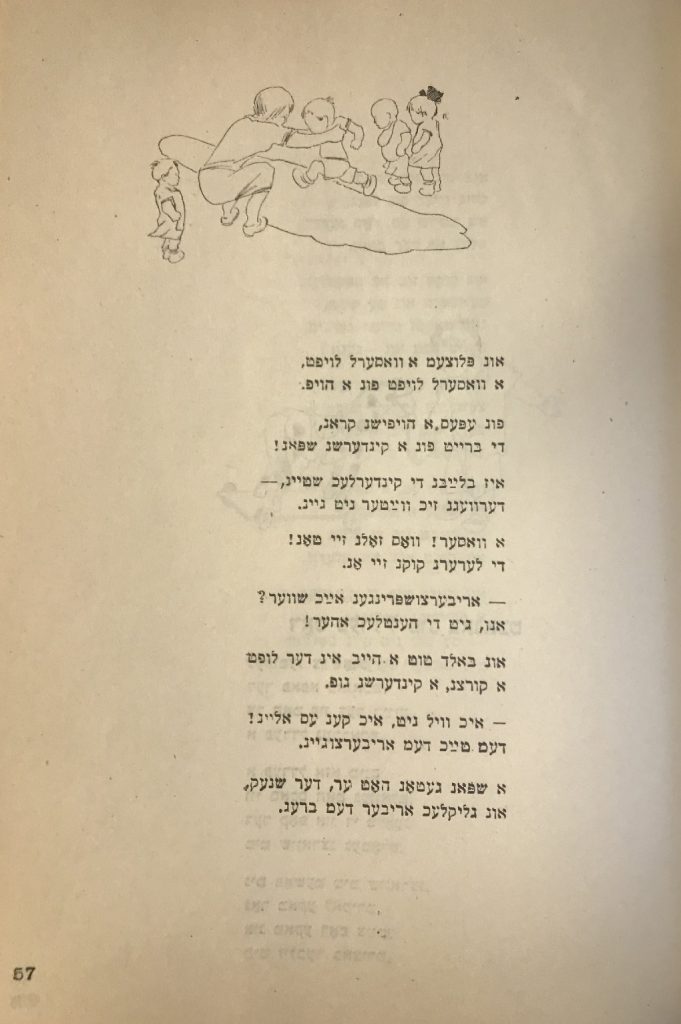 אונ פּלוצעמ א וואסערל לויפט,
א וואסערל לויפט פונ א הויפ.
פונ עפּעס א הויפישנ קראנ,
די ברייט פונ א קינדערשנ שפּאנ!
איז בלײַבנ די קינדערלעכ שטיינ,—
דערוועגנ זיכ ווײַטער ניט גיינ.
א וואסער! וואָס זאָלנ זיי טאָנ!
די לערערנ קוקנ זיי אָנ.
— אריבערצושפּרינגענ אײַכ שווער?
אנו, גיט די הענטלעכ אהער!
אונ באלד טוט א הייב אינ דער לופט
א קורצנ, א קינדערשנ גופ.
— איכ וויל ניט, איכ קענ עס אליינ!
דעמ טײַכ דעמ אריבערצוגיינ.
א שפּאנ געטאָנ האָט ער, דער שנעק,
אונ גליקלעכ אריבער דעמ ברעג.
57